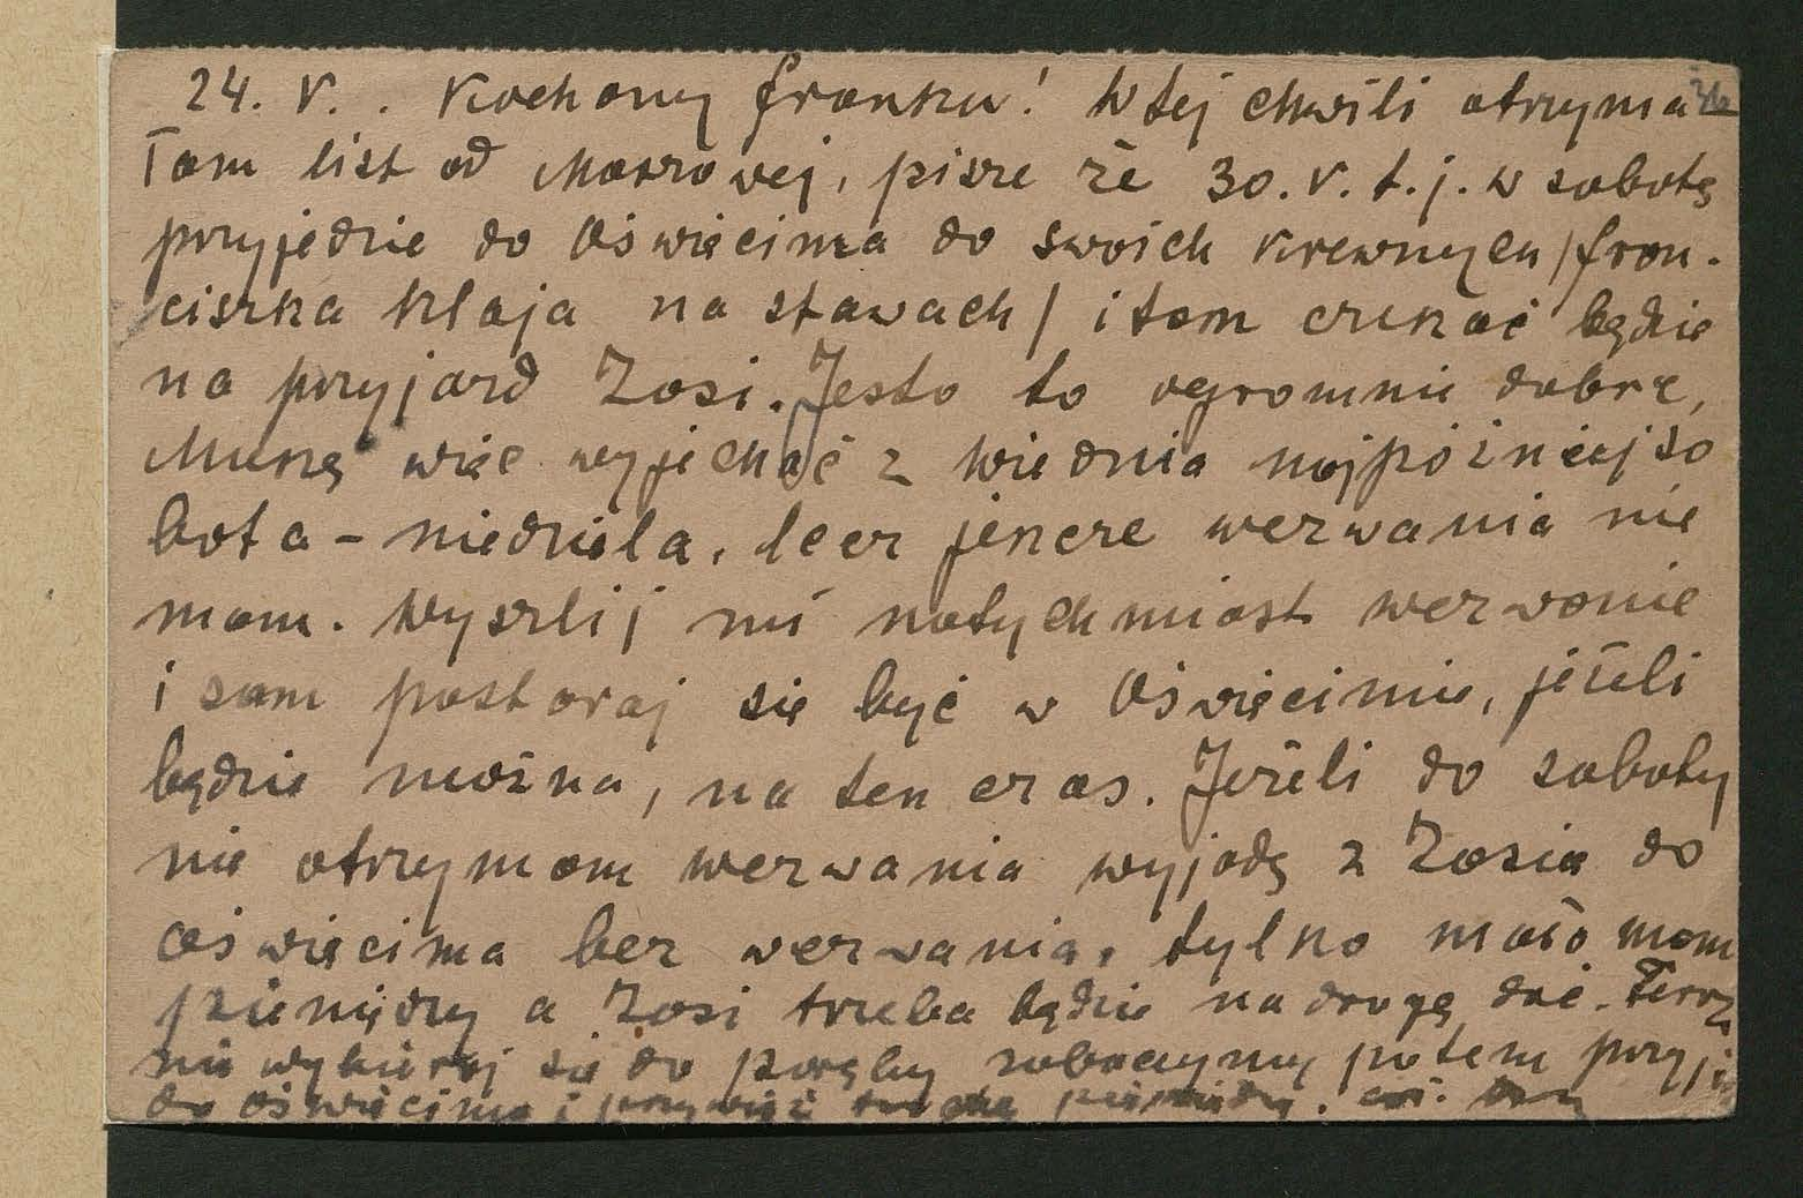 24. V.. Kochany Franku! W tej chwili otrzyma
łam list od Maszowej, pisze że 30. V. t.j. w sobotę
przyjedzie do Oświęcima do swoich krewnych /Fran-
ciszka Klaja na stawach/ i tam czekać będzie
na przyjazd Zosi. Jesto to ogromnie dobrze,
Muszę więc wyjechać z Wiednia najpóźniej so
bota - niedziela, lecz jeszcze wezwania nie
mam. Wyszlij mi natychmiast wezwanie
i sam postaraj się być w Oświęcimie, jeżeli
będzie można, na ten czas. Jeżeli do soboty
nie otrzymam wezwania wyjadę z Zosią do
Oświęcima bez wezwania, tylko mało mam
pieniędzy a Zosi trzeba będzie na drogę dać. Teraz
nie wybieraj się do Poręby zobaczymy potem przyj
do Oświęcima i przywieź trochę pieniędzy.